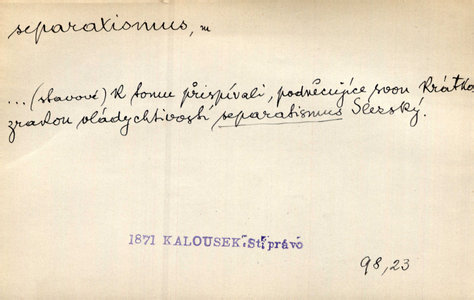 separatismus, m
...(stavové) k tomu přispívali, podněcujíce svou krátko
zrakou vládychtivostí separatismus Slezský.
1871 KALOUSEK: St. právo
98,23